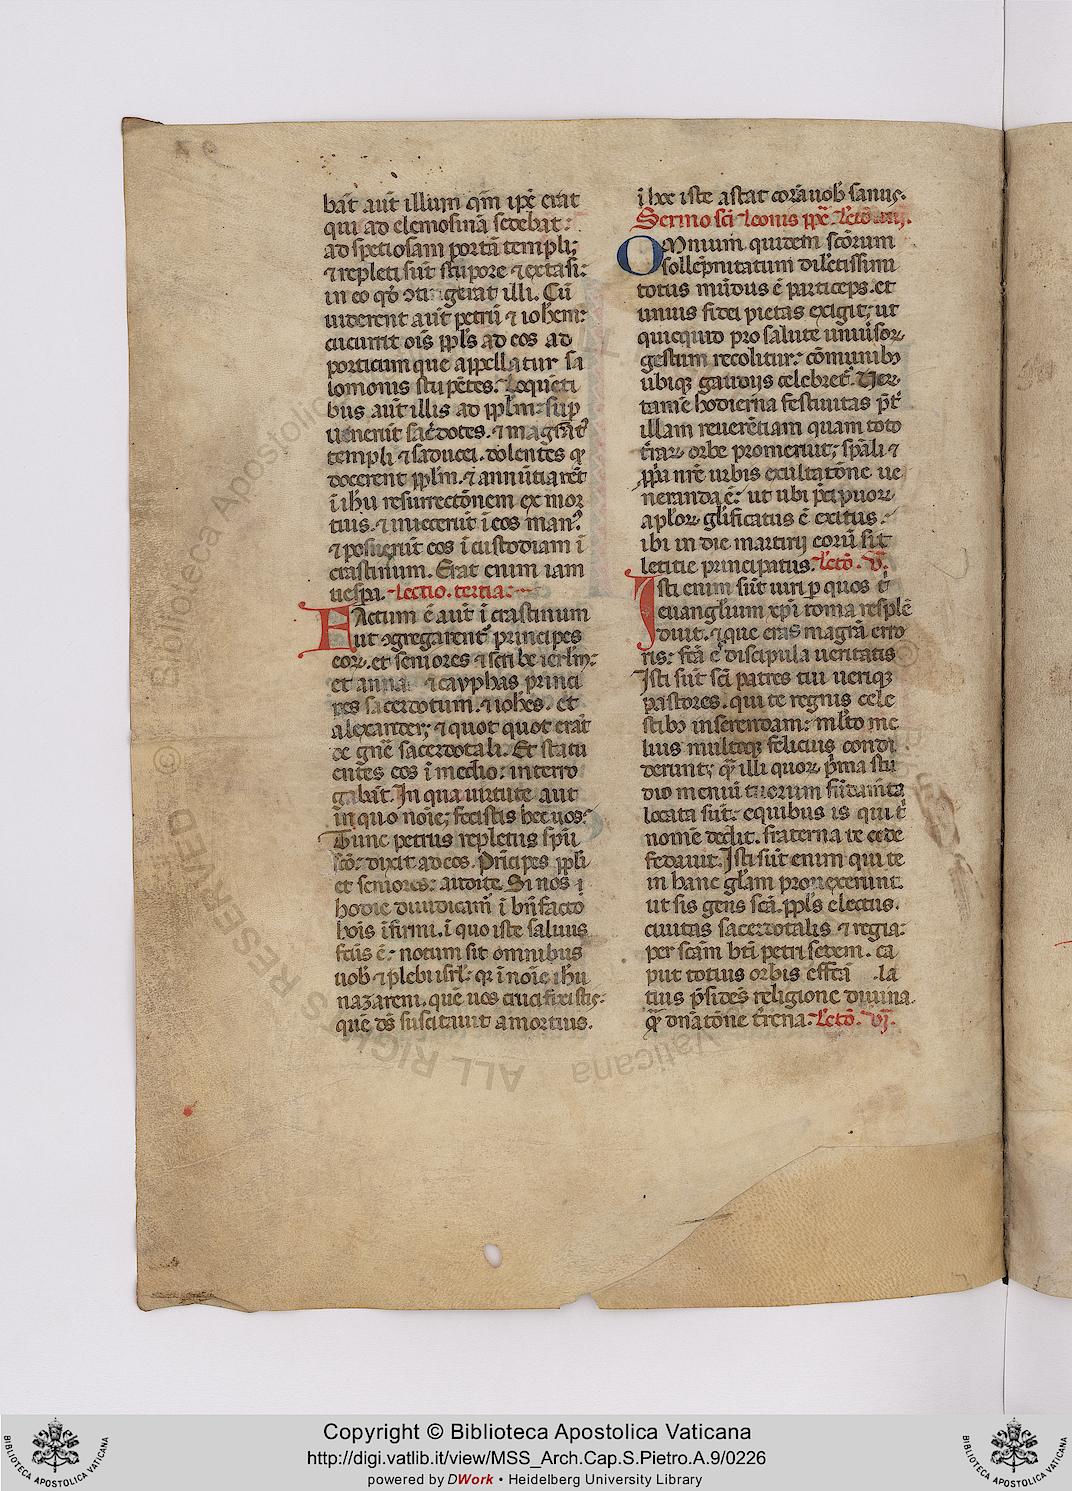 bāt aut̄ illum qm̄ ip̄e erat
qui ad elemosinā sedebat:
ad spetiosam portā templi;
⁊ repleti sūt stupore ⁊ extasi:
in eo qd̓ ↄtigerat illi. Cū
uiderent aut̄ petrū ⁊ ioh̄em:
cucurrit oīs ppl̄s ad eos ad
porticum que appellatur sa
lomonis stupētes. Loquēti
bus aut̄ illis ad ppl̄m: sup
uenerūt sac̄dotes. ⁊ magr̄at᷒
templi ⁊ saducei. dolentes qd̓
docerent ppl̄m. ⁊ annūtiarēt
ī ih̄u resurrectōnem ex mor
tuis. ⁊ iniecerūt ī eos man᷒.
⁊ posuerūt eos ī custodiam ī
crastinum. Erat enim iam
uespa. Lectio. tertia.
FActum ē aut̄ ī crastinum
ut ↄgregarent᷒ principes
eoꝝ. et seniores ⁊ scribe ierl̄m:
et anna ⁊ cayphas princi
pes sacerdotum. ⁊ ioh̄es. et
alexander; ⁊ quot quot erāt
de gn̄e sacerdotali. Et statu
entes eos ī medio: interro
gabāt. In qua uirtute aut
in quo nōie; fecistis hec uos:
Tunc petrus repletus sp̄u
sc̄o: dixit ad eos. Prīcipes ppl̄i
et seniores: audite. Si nos
hodie diiudicam̄ ī bn̄facto
hoīs īfirmi. ī quo iste saluus
fc̄us ē: notum sit omnibus
uob̄ ⁊ plebi isrl̄: qr ī nōie ih̄u
nazareni. quē uos crucifixistis:
quē ds̄ suscitauit a mortuis.
ī hoc iste astat corā uob̄ sanus.
Sermo sc̄i Leonis pp̄e. Lc̄tō. iiij.
OMnium quidem sc̄orum
sollēpnitatum dilc̄tissimi
totus mūdus ē particeps. et
unius fidei pietas exigit; ut
quicquid pro salute uniūsoꝝ
gestum recolitur: cōmunibꝫ
ubiqꝫ gaudijs celebret᷒. Veꝝ
tamē hodierna festiuitas p̄t̄
illam reuerētiam quam toto
t̄raꝝ orbe promeruit; sp̄ali ⁊
pp̄a nr̄e urbis exultatōne ue
neranda ē: ut ubi p̄cipuoꝝ
ap̄loꝝ gl̄ificatus ē exitus:
ibi in die martirij eorū sit
letitie principatus. Lc̄tō. V̄.
Isti enim sūt uiri p quos t̄
euanglium xp̄i roma resplē
duit. ⁊ que eras magr̄a erro
ris: fc̄a es discipula ueritatis
Isti sūt sc̄i patres tui ueriqꝫ
pastores. qui te regnis cele
stibꝫ inserendam: ml̄to me
lius multoqꝫ felicius condi
derunt; qꝫ illi quoꝝ p̄ma stu
dio meniū tuorum fūdam̄ta
locata sūt: equibus is qui t̄
nomē dedit. fraterna te cede
fedauit. Isti sūt enim qui te
in hanc gl̄am prouexerunt.
ut sis gens sc̄a. ppl̄s electus.
ciuitas sacerdotalis ⁊ regia:
per sc̄am bt̄i petri sedem. ca
put totius orbis effc̄a .la
tius p̄sides religione diuina.
qꝫ dn̄atōne t̄rena. Lc̄tō. vj̄.
Copyright © Biblioteca Apostolica Vaticana
http://digi.vatlib.it/view/MSS_Arch.Cap.S.Pietro.A.9/0226
powered by DWork • Heidelberg University Library
BIBLIOTECA APOSTOLICA VATICANA
BIBLIOTECA APOSTOLICA VATICANA
© Biblioteca Apostolica Vaticana
ALL RIGHTS RESERVED